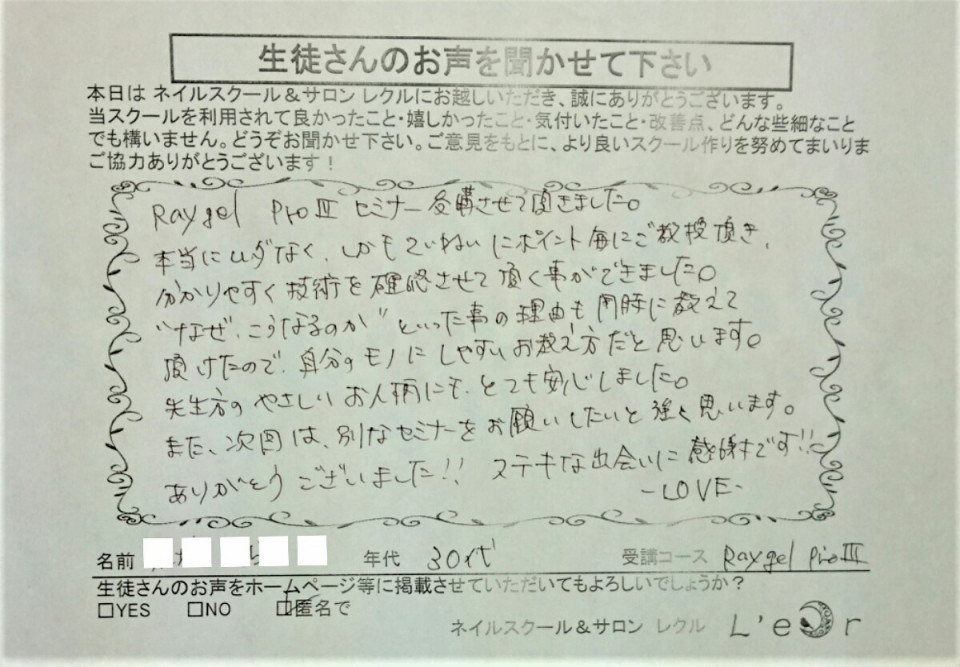 生徒さんのお声を聞かせて下さい
本日は ネイルスクール＆サロン レクルにお越しいただき、誠にありがとうございます。
当スクールを利用されて良かったこと・嬉しかったこと・気付いたこと・改善点、どんな些細なこと
でも構いません。どうぞお聞かせ下さい。ご意見をもとに、より良いスクール作りを努めてまいりま
ご協力ありがとうございます！
Raygel ProⅢ セミナー受講させて頂きました。
本当にムダなく、しかもていねいにポイント毎にご教授頂き、
分かりやすく技術を確認させて頂く事ができました。
"なぜ、こうなるのか"といった事の理由も同時に教えて
頂けたので、自分のモノにしやすいお教え方だと思います。
先生方のやさしいお人柄にも、とても安心しました。
また、次回は、別なセミナーをお願いしたいと強く思います。
ありがとうございました!! ステキな出会いに感謝です!!
-LOVE-
名前 年代 30代 受講コース Raygel ProⅢ
生徒さんのお声をホームページ等に掲載させていただいてもよろしいでしょうか？
□YES □NO □匿名で
ネイルスクール＆サロン レクル L'eOr